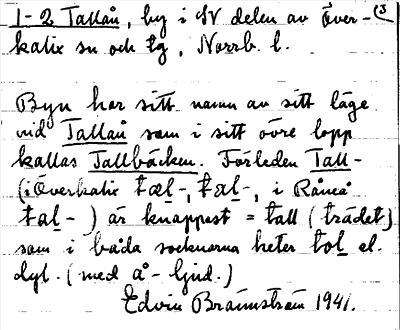 1-2 Tallån, by i N delen av Över-
kalix sn och tg, Norrb. l.
Byn har sitt namn av sitt läge
vid Tallån som i sitt övre lopp
kallas Tallbäcken. Förleden Tall-
(i Överkalix tæl-, tæl-, i Råneå
tal-) är knappast = tall (trädet)
som i båda socknarna heter tol el.
dyl. (med å-ljud.)
Edvin Brännström 1941.
3